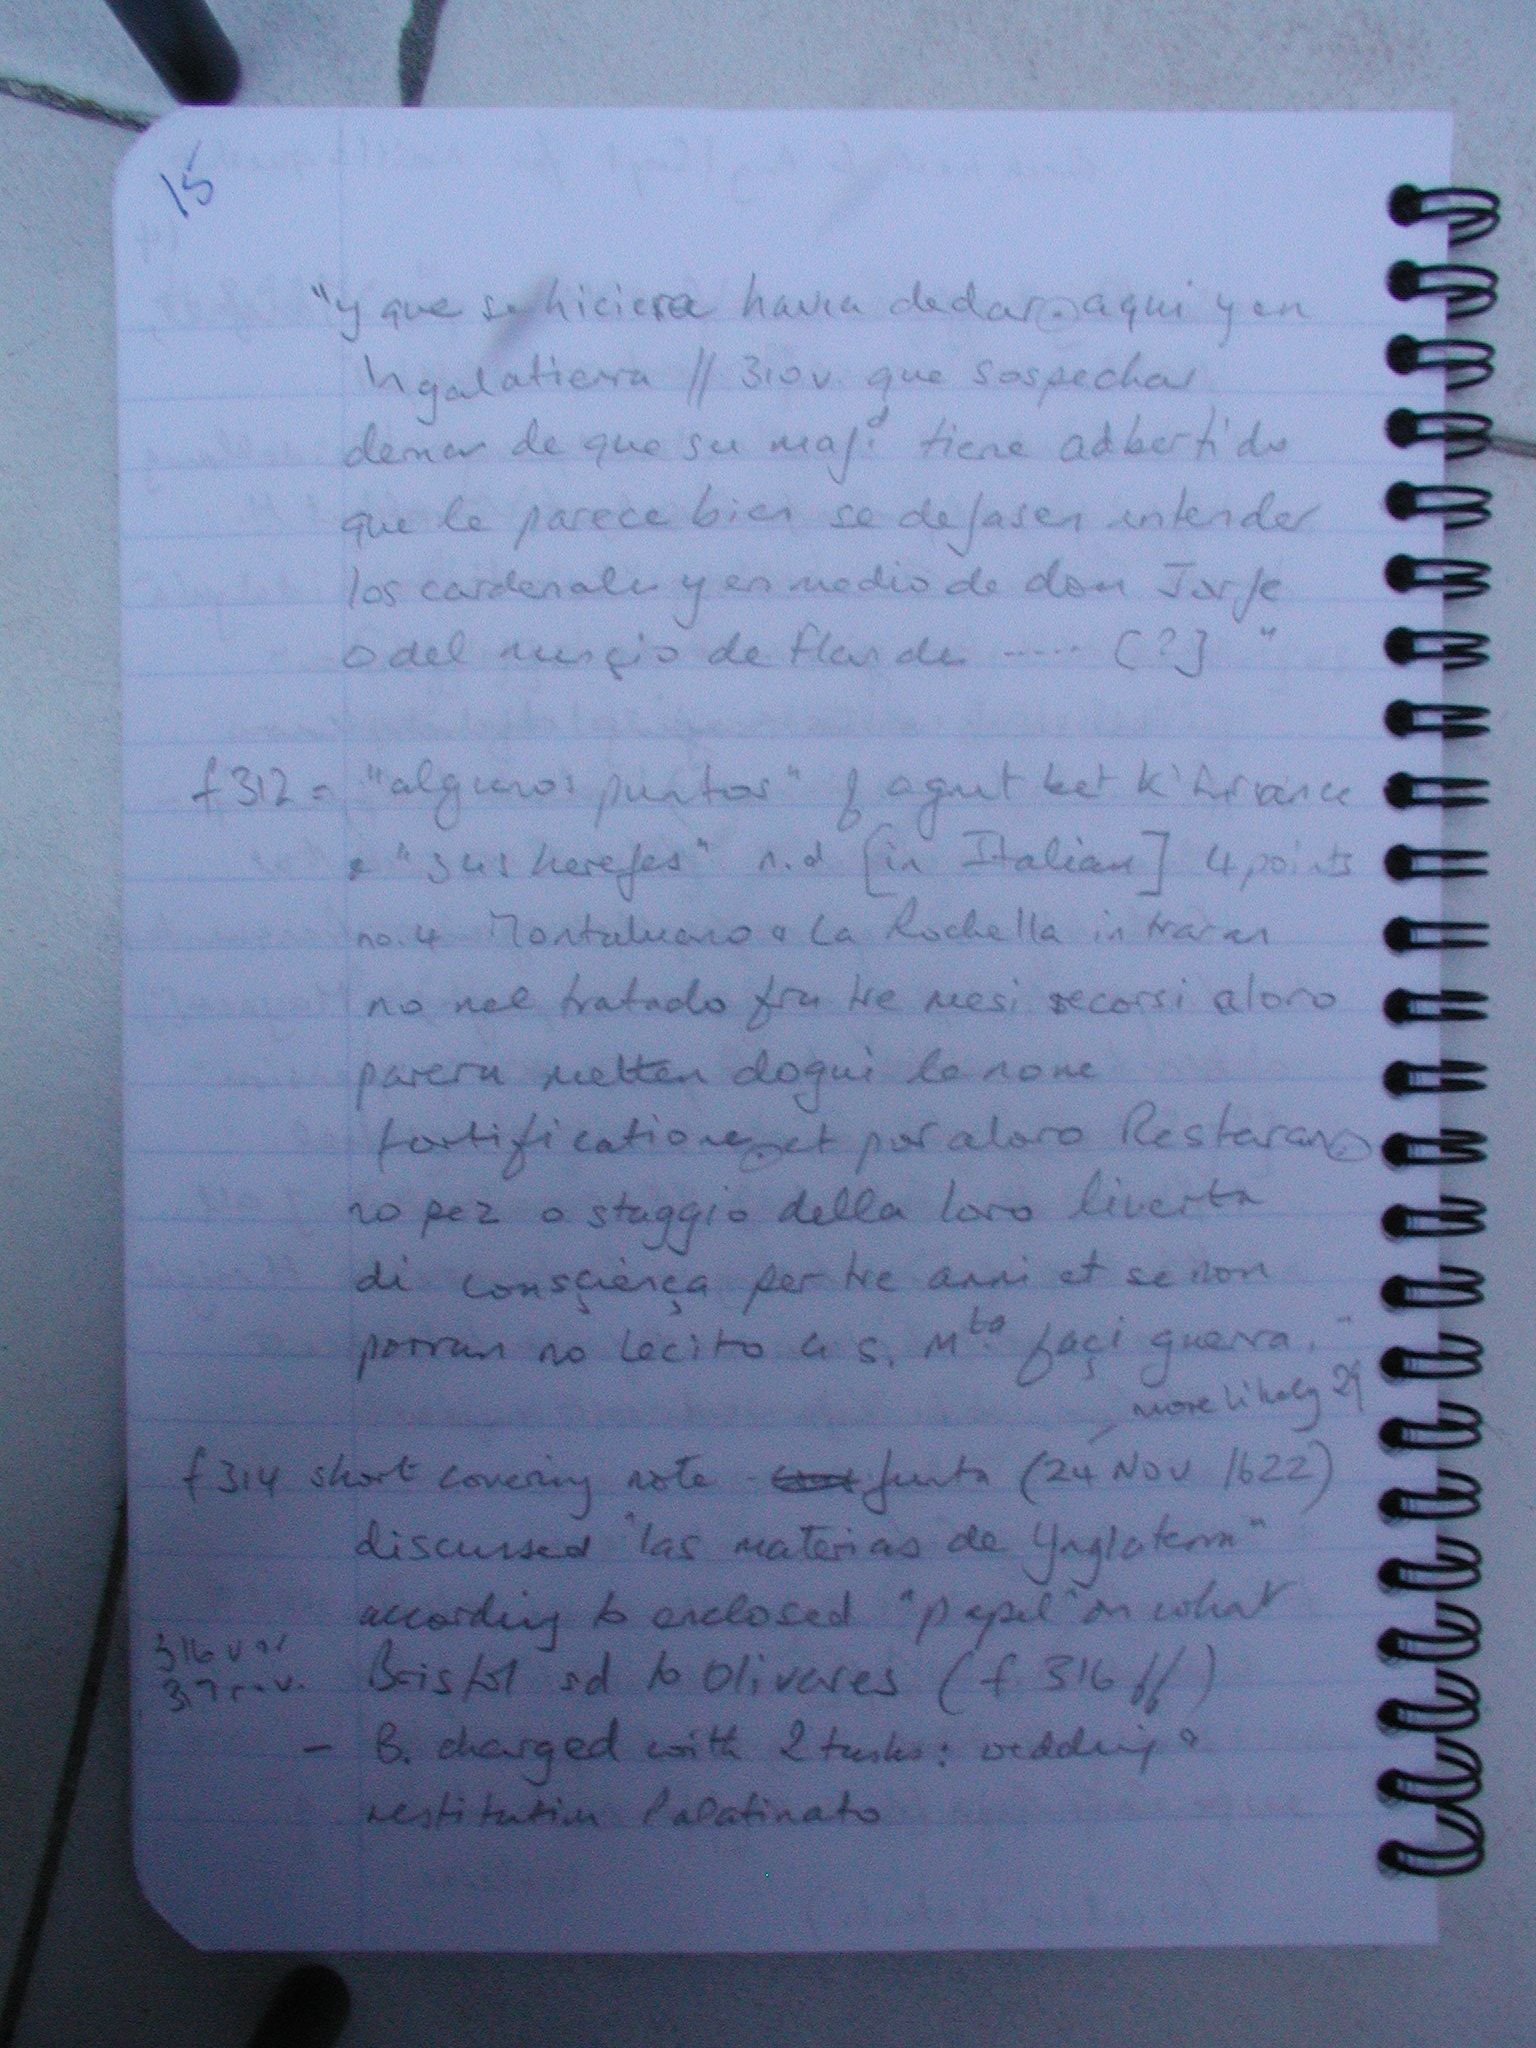 15
"y que se hiciera havia dedar aqui y en
Ingalatierra // 310v. que sospechar
demas de que su majd. tiene adbertido
que le parece bien se dejasen entender
los cardenales y en medio de don Jorje
o del nunçio de flandes ...... [?] "
f 312 = "algunos puntos" of agmt bet K' France
& "sus herejes" n.d [in Italian] 4 points
no. 4 Montalvano & La Rochella intraran
no nel tratado fra tre mesi secorsi aloro
parera metter dogni le nove
fortificatione et por aloro Restaran
no pez o staggio della loro liverta
di consçiença per tre anni et se non
porran no lecito a s. Mta. façi guerra."
more likely 29
f 314 short covering note - Junta (24 Nov 1622)
discussed "las materias de Ynglaterra"
according to enclosed "papel" on what
316 v
317 r. v.
Bristol sd to Olivares (f. 316 ff)
- B. charged with 2 tasks: wedding &
restitution Palatinato